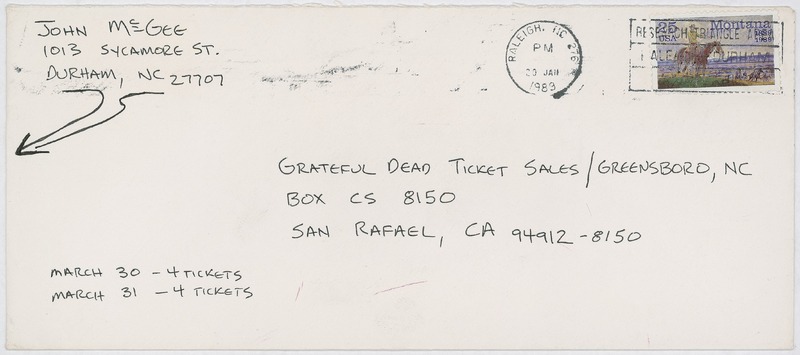 John McGee
1013 Sycamore St.
Durham, NC 27707
RALEIGH, NC
PM
20 JAN
1989
RESEARCH TRIANGLE
RALEIGH DURHAM
25
USA
Montana
1889
1989
Grateful Dead Ticket Sales/Greensboro, NC
Box CS 8150
San Rafael, CA 94912-8150
March 30 - 4 tickets
March 31 - 4 tickets